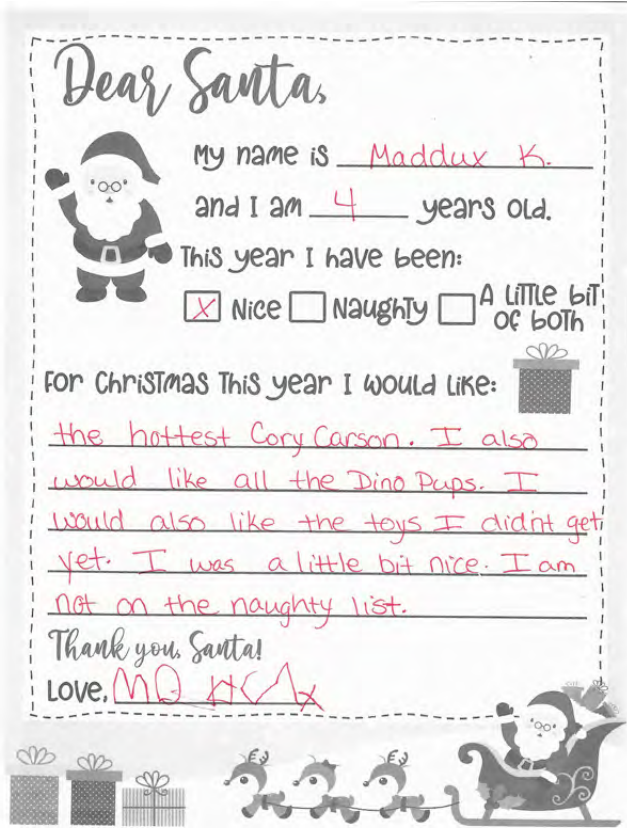 Dear Santa,
My name is Maddux K.
and I am 4 years old.
This year I have been:
X Nice Naughty A little bit
of both
For Christmas this year I would like:
the hottest Cory Carson. I also
would like all the Dino Pups. I
would also like the toys I didn't get
yet. I was a little bit nice. I am
not on the naughty list.
Thank you, Santa!
Love,